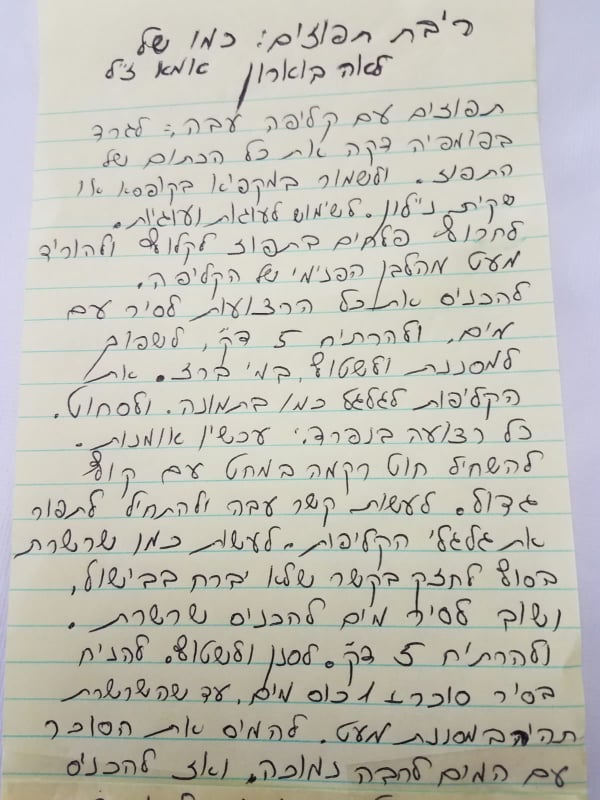 ריבת תפוזים: כמו של
לאה בוארון אמא ז"ל
תפוזים עם קליפה עבה, לגרד
בפומפיה דקה את כל הכתום של
התפוז. ולשמור במקפיא בקופסא או
שקית ניילון. לשימוש לעוגות ועוגיות.
לחרוץ פלחים בתפוז לקלוף ולהוריד
מעט מהלבן הפנימי של הקליפה.
להכניס את כל הרצועות לסיר עם
מים, ולהרתיח 5 דק', לשפוך
למסננת ולשטוף במי ברז. את
הקליפות לגלגל כמו בתמונה. ולסחוט.
כל רצועה בנפרד. עכשיו אומנות.
להשחיל חוט רקמה במחט עם קוף
גדול. לעשות קשר עבה ולהתחיל לתפור
את גלגלי הקליפות. לעשות כמו שרשרת
בסוף לחזק בקשר שלא יברח בבישול,
ושוב לסיר מים להכניס שרשרת.
ולהרתיח 5 דק'. לסנן ולשטוף. להניח
בסיר סוכר + 1 כוס מים, עד שהשרשרת
תהיה במסננת מעט. להמיס את הסוכר
עם המים להבה נמוכה. ואז להכניס